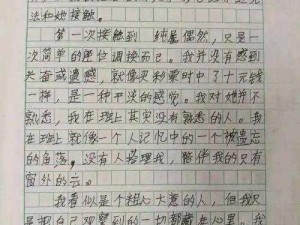 法和她接触。
第一次接触到 纯属偶然,只是一
次简单的座位调换而已。我并没有感到
兴奋或遗憾,就像买彩票时中了十元钱
一样,是一种平淡的感觉。我对她并不
熟悉,我在班上其实没有熟悉的人。我
在班上就像一个人记忆中的一个被遗忘
的角落,没有人搭理我,陪伴我的只有
窗外的云。
我看似是个粗心大意的人,但我只
是把自己观察到的一切都藏在心里。我